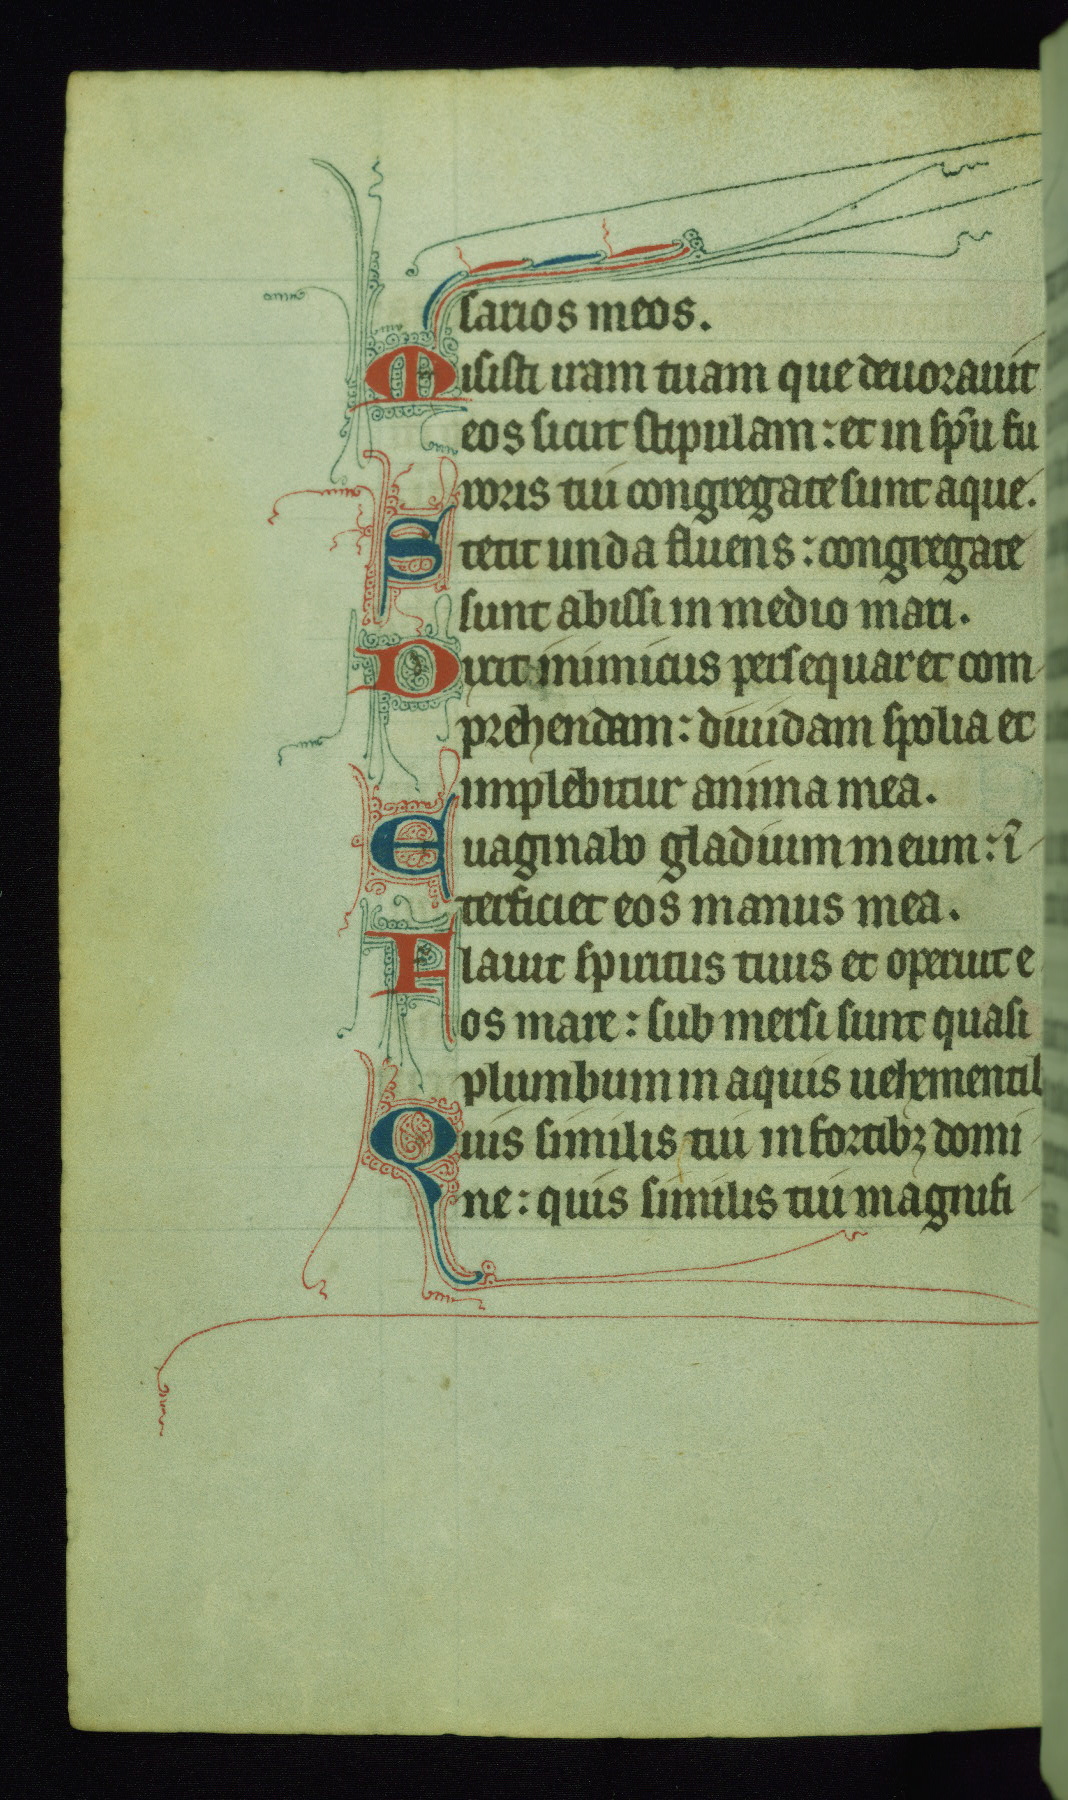 sarios meos.
Misisti iram tuam que deuorauit
eos sicut stipulam: et in sp̅u fu
roris tui congregate sunt aque.
Stetit unda fluens: congregate
sunt abissi in medio mari.
Dixit inimicus persequar et com
prehendam: diuidam spolia et
implebitur anima mea.
Euaginabo gladium meum: ī
terficiet eos manus mea.
Flauit spiritus tuus et operuit e
os mare: sub mersi sunt quasi
plumbum in aquis uehementib
Quis similis tui in fortibꝫ domi
ne: quis similis tui magnifi